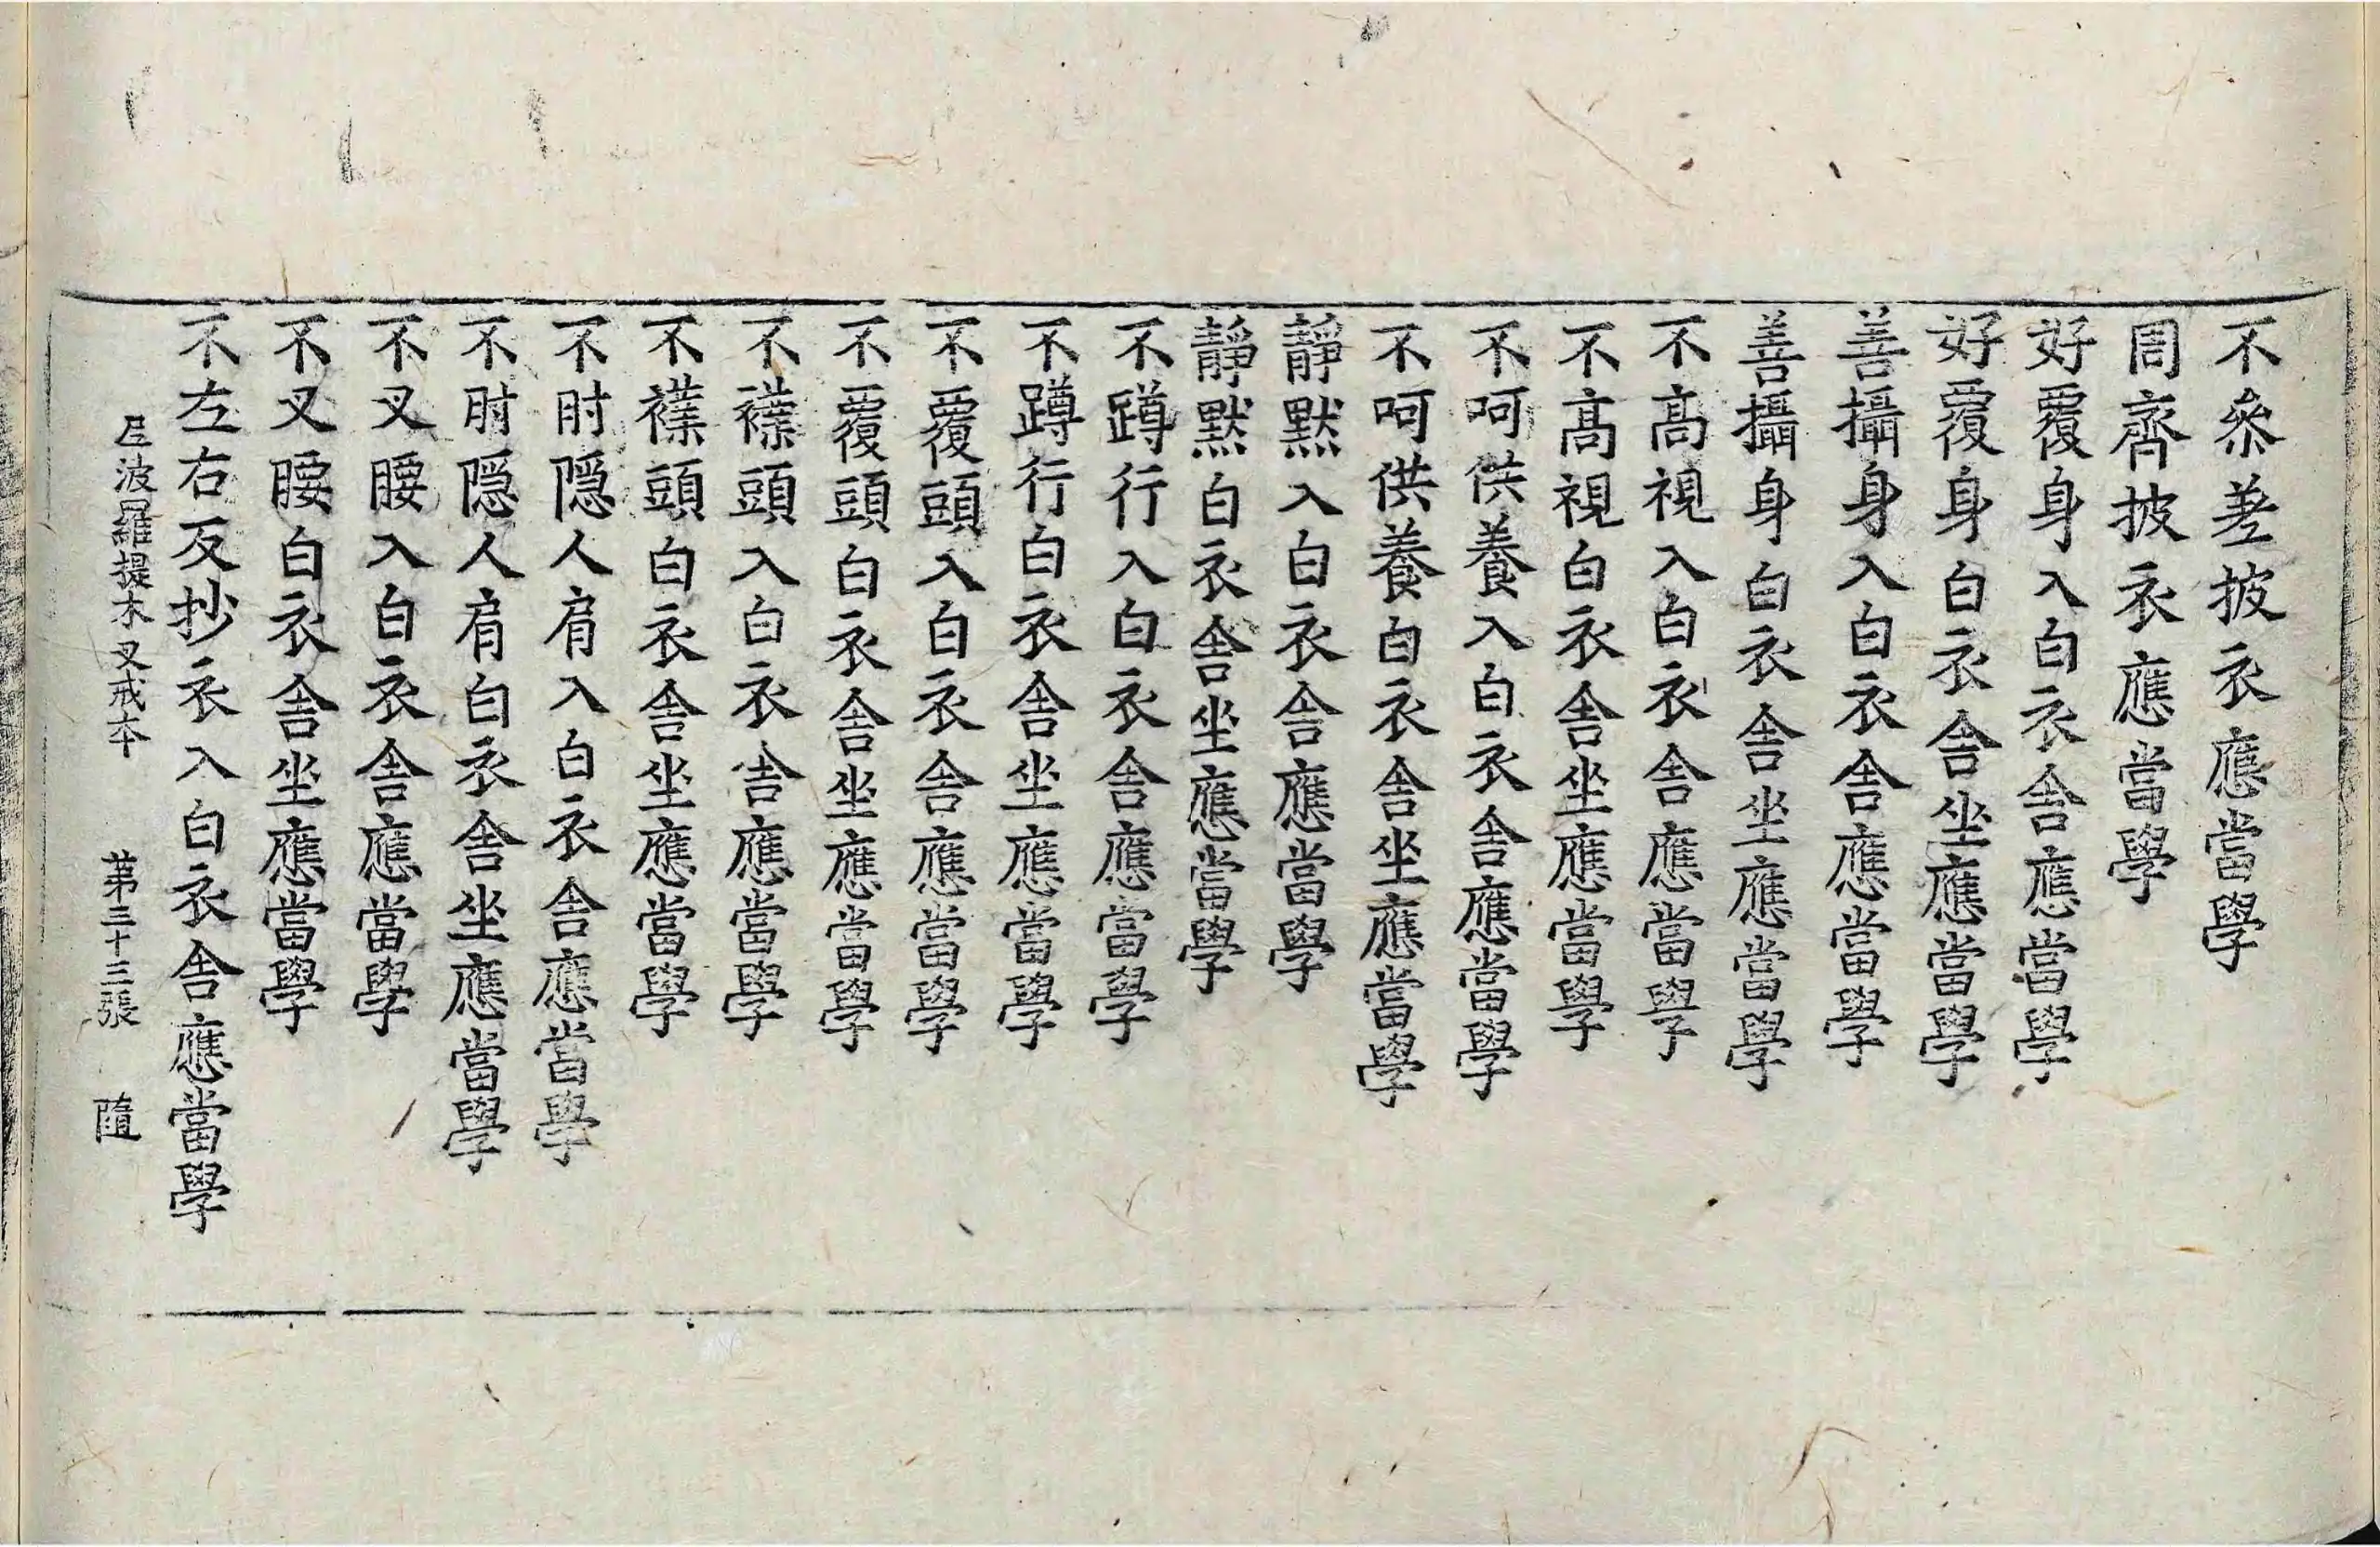 不叅差披衣應當學
周齊披衣應當學
好覆身入白衣舎應當學
好覆身白衣舎坐應當學
善攝身入白衣舎應當學
善攝身白衣舎坐應當學
不髙視入白衣舎應當學
不髙視白衣舎坐應當學
不呵供養入白衣舎應當學
不呵供養白衣舎坐應當學
靜默入白衣舎應當學
靜默白衣舎坐應當學
不蹲行入白衣舎應當學
不蹲行白衣舎坐應當學
不覆頭入白衣舎應當學
不覆頭白衣舎坐應當學
不襆頭入白衣舎應當學
不襆頭白衣舎坐應當學
不肘隠人肩入白衣舎應當學
不肘隠人肩白衣舎坐應當學
不叉腰入白衣舎應當學
不叉腰白衣舎坐應當學
不左右反抄衣入白衣舎應當學
尼波羅提木叉戒本 第三十三張 隨